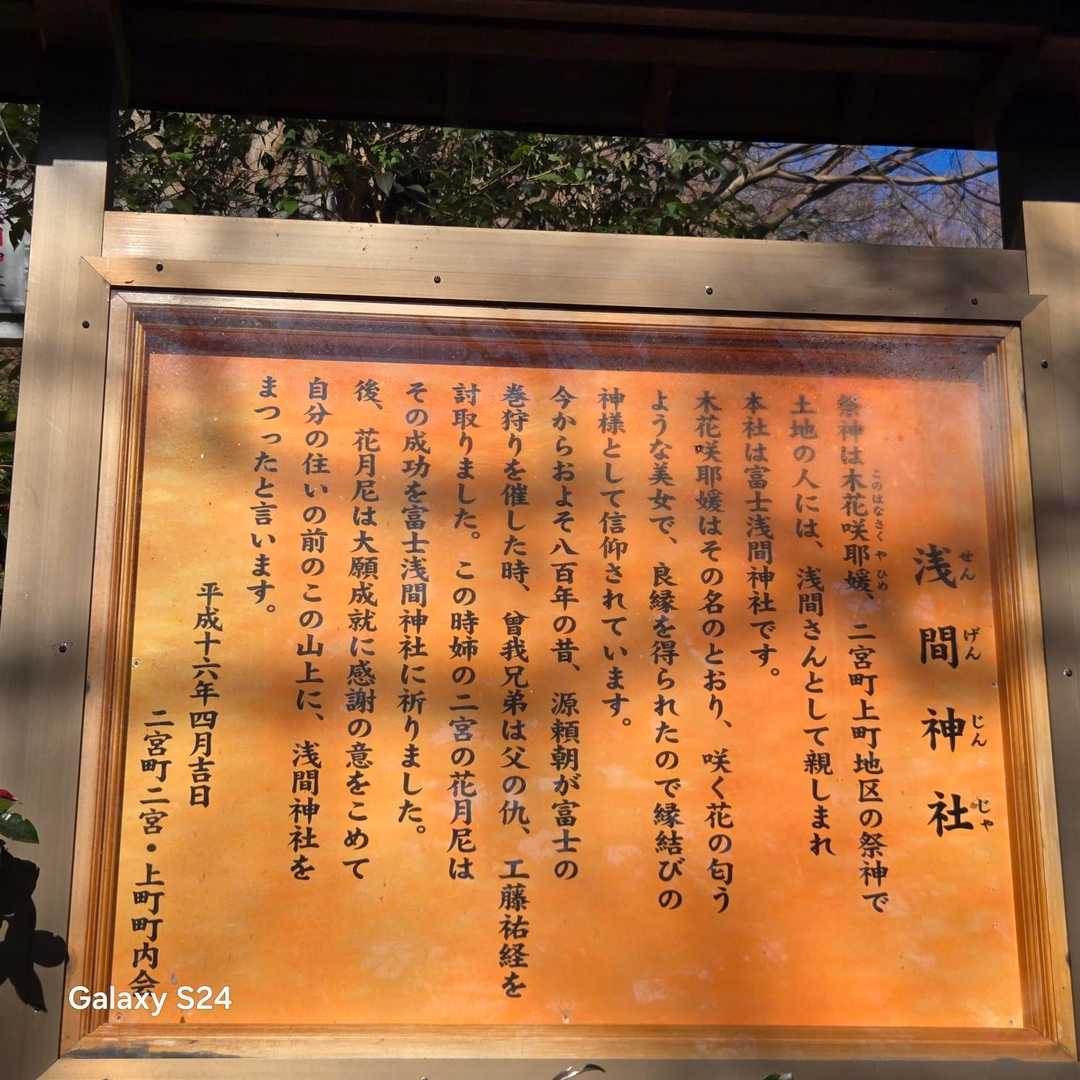 浅間神社
せんげんじんじゃ
祭神は木花咲耶媛、二宮町上町地区の祭神で
このはなさくやひめ
土地の人には、浅間さんとして親しまれ
本社は富士浅間神社です。
木花咲耶媛はその名のとおり、咲く花の匂う
ような美女で、良縁を得られたので縁結びの
神様として信仰されています。
今からおよそ八百年の昔、源頼朝が富士の
巻狩りを催した時、曾我兄弟は父の仇、工藤祐経を
討取りました。この時姉の二宮の花月尼は
その成功を富士浅間神社に祈りました。
後、花月尼は大願成就に感謝の意をこめて
自分の住いの前のこの山上に、浅間神社を
まつったと言います。
平成十六年四月吉日
二宮町二宮・上町町内会
Galaxy S24